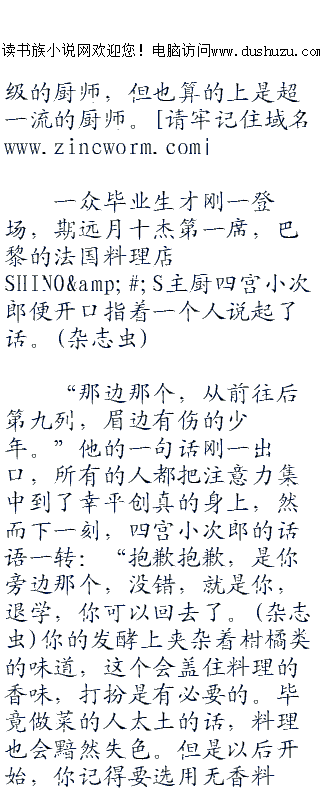 读书族小说网欢迎您！电脑访问www.dushuzu.com
级的厨师，但也算的上是超
一流的厨师。[请牢记住域名
www.zincworm.com|
一众毕业生才刚一登
场，期远月十杰第一席，巴
黎的法国料理店
SHINO&amp;#;S主厨四宫小次
郎便开口指着一个人说起了
话。(杂志虫)
“那边那个，从前往后
第九列，眉边有伤的少
年。”他的一句话刚一出
口，所有的人都把注意力集
中到了幸平创真的身上，然
而下一刻，四宫小次郎的话
语一转：“抱歉抱歉，是你
旁边那个，没错，就是你，
退学，你可以回去了。(杂志
虫)你的发酵上夹杂着柑橘类
的味道，这个会盖住料理的
香味，打扮是有必要的。毕
竟做菜的人太土的话，料理
也会黯然失色。但是以后开
始，你记得要选用无香料